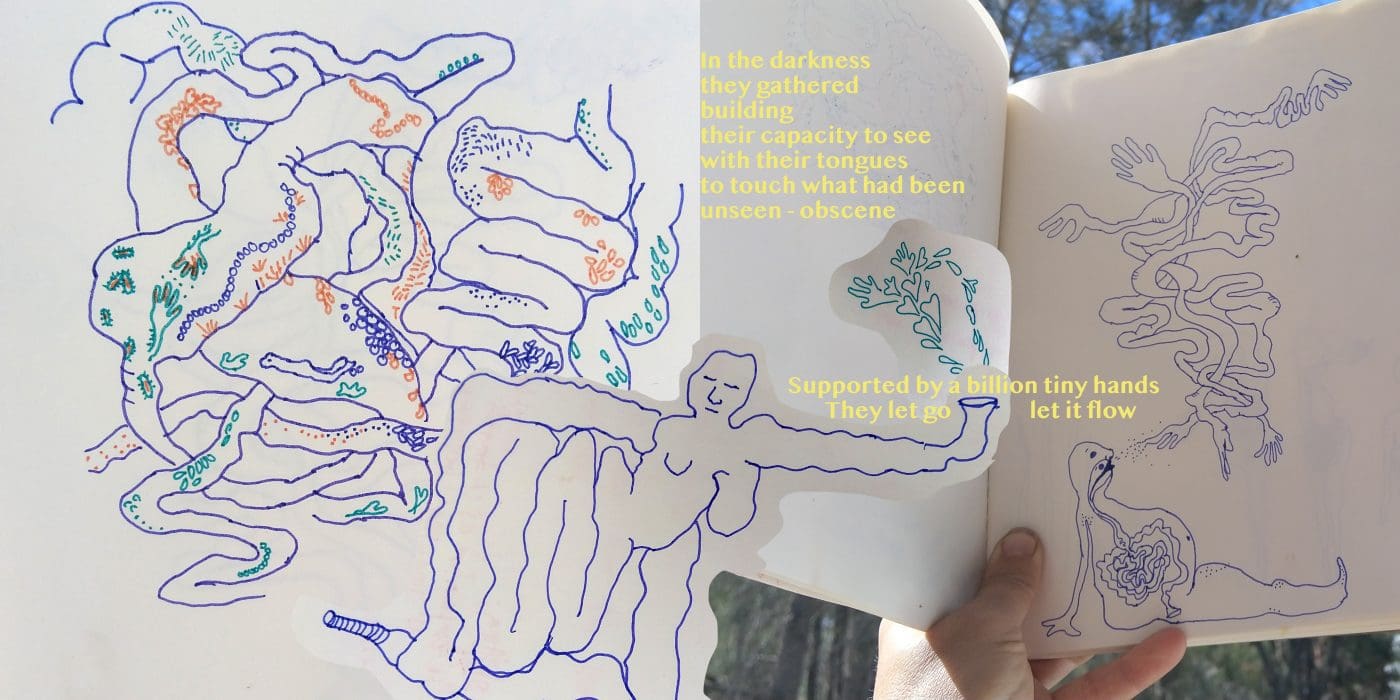 In the darkness
they gathered
building
their capacity to see
with their tongues
to touch what had been
unseen - obscene
Supported by a billion tiny hands
They let go let it flow